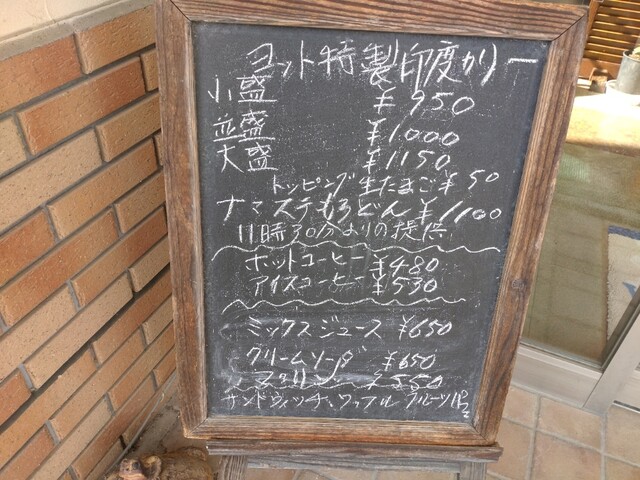 ヨット特製印度カリー
小盛 ¥950
並盛 ¥1000
大盛 ¥1150
トッピング生たまご¥50
ナマステもろどん ¥1100
11時30分よりの提供
ホットコーヒー ¥480
アイスコーヒー ¥530
ミックスジュース ¥650
クリームソーダ ¥650
¥550
サンドウィッチ、ワッフル フルーツパフェ